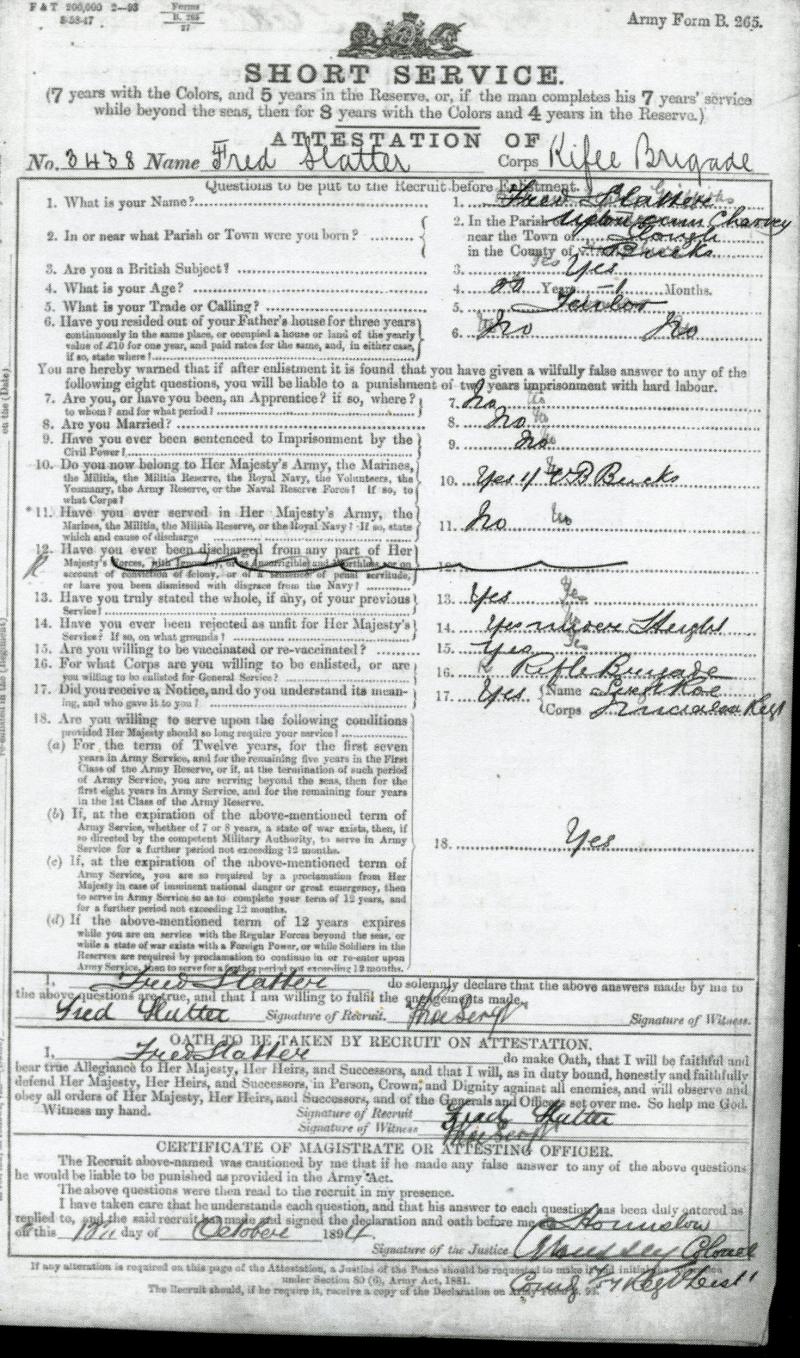 F & T 200,000 2—93
Forms
B. 265
27
Army Form B. 265.
SHORT SERVICE.
(7 years with the Colors, and 5 years in the Reserve, or, if the man completes his 7 years' service
while beyond the seas, then for 8 years with the Colors and 4 years in the Reserve.)
ATTESTATION OF
No. 3438 Name Fred Slatter Corps Rifle Brigade
Questions to be put to the Recruit before Enlistment.
1. What is your Name? 1. Fred Slatter
2. In or near what Parish or Town were you born? 2. In the Parish of Upton cum Chalvey
near the Town of Slough
in the County of Bucks
3. Are you a British Subject? 3. Yes
4. What is your Age? 4. Years Months.
5. What is your Trade or Calling? 5.
6. Have you resided out of your Father's house for three years
continuously in the same place, or occupied a house or land of the yearly
value of £10 for one year, and paid rates for the same, and, in either case,
if so, state where! 6. No No
You are hereby warned that if after enlistment it is found that you have given a wilfully false answer to any of the
following eight questions, you will be liable to a punishment of two years imprisonment with hard labour.
7. Are you, or have you been, an Apprentice? if so, where?
to whom? and for what period? 7. No No
8. Are you Married? 8. No No
9. Have you ever been sentenced to Imprisonment by the
Civil Power? 9. No
10. Do you now belong to Her Majesty's Army, the Marines,
the Militia, the Militia Reserve, the Royal Navy, the Volunteers, the
Yeomanry, the Army Reserve, or the Naval Reserve Force? If so, to
what Corps? 10. Yes V B Bucks
*11. Have you ever served in Her Majesty's Army, the
Marines, the Militia, the Militia Reserve, or the Royal Navy? If so, state
which and cause of discharge 11. No No
12. Have you ever been discharged from any part of Her
Majesty's Forces, with Ignominy, or as Incorrigible and Worthless, or on
account of conviction of felony, or of a sentence of penal servitude,
or have you been dismissed with disgrace from the Navy? 12.
13. Have you truly stated the whole, if any, of your previous
Service? 13. Yes Yes
14. Have you ever been rejected as unfit for Her Majesty's
Service? If so, on what grounds? 14. Yes under Height
15. Are you willing to be vaccinated or re-vaccinated? 15. Yes
16. For what Corps are you willing to be enlisted, or are
you willing to be enlisted for General Service? 16. Rifle Brigade
17. Did you receive a Notice, and do you understand its mean-
ing, and who gave it to you? 17. Yes Name Sergt
Corps Regt
18. Are you willing to serve upon the following conditions
provided Her Majesty should so long require your service!
(a) For the term of Twelve years, for the first seven
years in Army Service, and for the remaining five years in the First
Class of the Army Reserve, or if, at the termination of such period
of Army Service, you are serving beyond the seas, then for the
first eight years in Army Service, and for the remaining four years
in the 1st Class of the Army Reserve.
(b) If, at the expiration of the above-mentioned term of
Army Service, whether of 7 or 8 years, a state of war exists, then, if
so directed by the competent Military Authority, to serve in Army
Service for a further period not exceeding 12 months.
18. Yes
(c) If, at the expiration of the above-mentioned term of
Army Service, you are so required by a proclamation from Her
Majesty in case of imminent national danger or great emergency, then
to serve in Army Service so as to complete your term of 12 years, and
for a further period not exceeding 12 months.
(d) If the above-mentioned term of 12 years expires
while you are on service with the Regular Forces beyond the seas, or
while a state of war exists with a Foreign Power, or while Soldiers in the
Reserves are required by proclamation to continue in or re-enter upon
Army Service, then to serve for a further period not exceeding 12 months.
I, Fred Slatter do solemnly declare that the above answers made by me to
the above questions are true, and that I am willing to fulfil the engagements made.
Fred Slatter Signature of Recruit. Signature of Witness.
OATH TO BE TAKEN BY RECRUIT ON ATTESTATION.
I, Fred Slatter do make Oath, that I will be faithful and
bear true Allegiance to Her Majesty, Her Heirs, and Successors, and that I will, as in duty bound, honestly and faithfully
defend Her Majesty, Her Heirs, and Successors, in Person, Crown, and Dignity against all enemies, and will observe and
obey all orders of Her Majesty, Her Heirs, and Successors, and of the Generals and Officers set over me. So help me God.
Witness my hand. Signature of Recruit Fred Slatter
Signature of Witness
CERTIFICATE OF MAGISTRATE OR ATTESTING OFFICER.
The Recruit above-named was cautioned by me that if he made any false answer to any of the above questions
he would be liable to be punished as provided in the Army Act.
The above questions were then read to the recruit in my presence.
I have taken care that he understands each question, and that his answer to each question has been duly entered as
replied to, and the said recruit has made and signed the declaration and oath before me at Hounslow
on this 12th day of October 1894.
Signature of the Justice Colonel
Comdg Regt Dist
If any alteration is required on this page of the Attestation, a Justice of the Peace should be requested to make it and initial
under Section 80 (6), Army Act, 1881.
The Recruit should, if he require it, receive a copy of the Declaration on